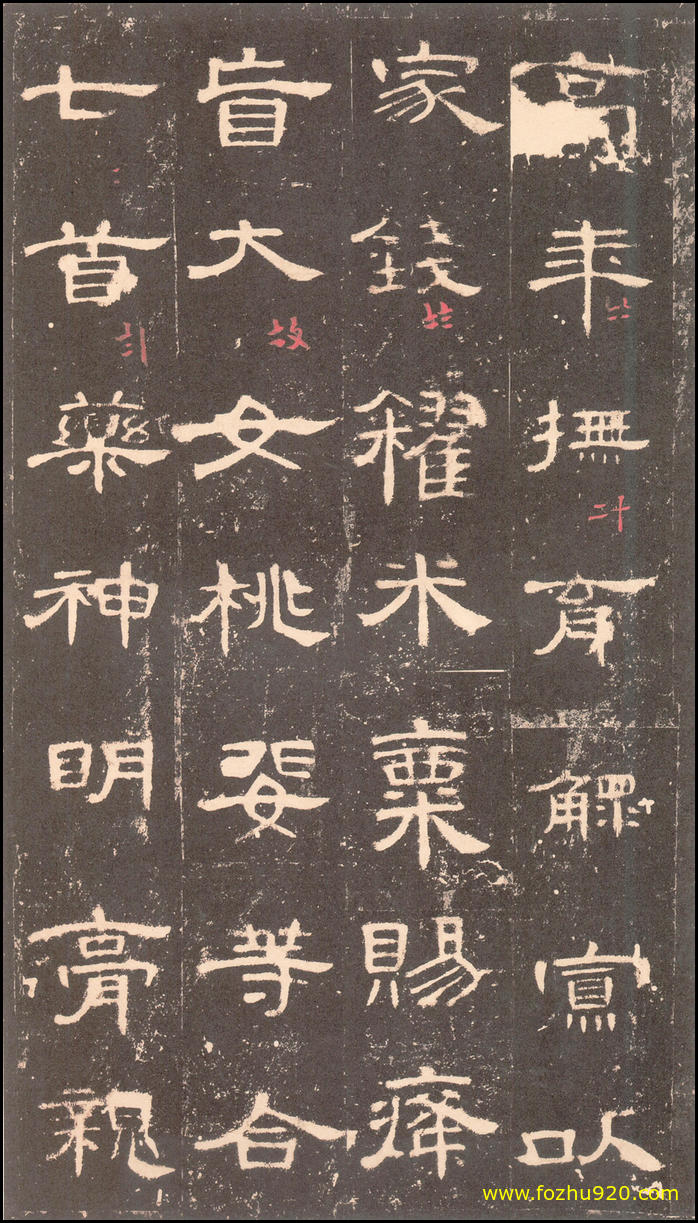 高年撫育鰥寡以
家錢糴米粟賜癃
盲大女桃婓等合
七首藥神明膏親
www.fozhu920.com